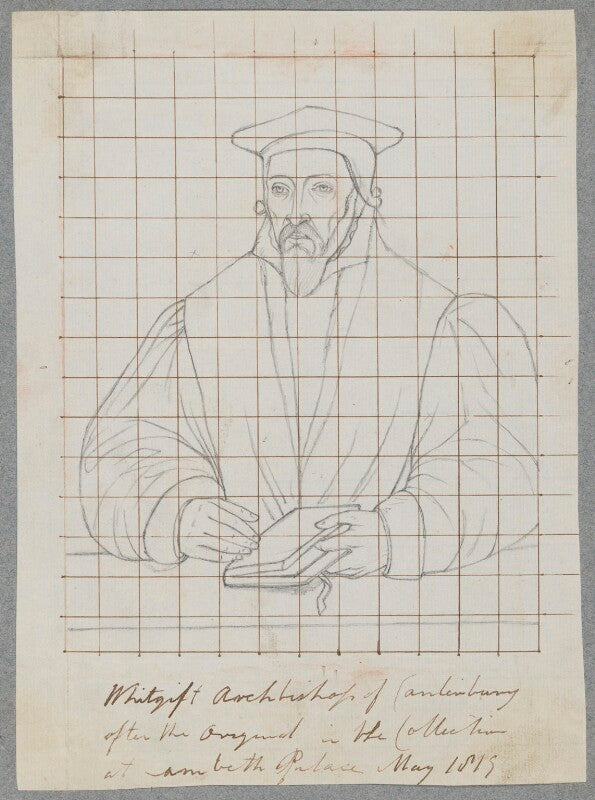 Whitgift Archbishop of Canterbury
after the Original in the Collection
at Lambeth Palace May 1819